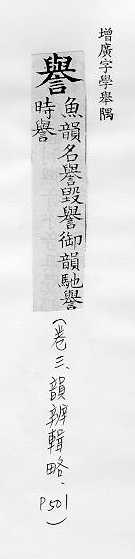 增廣字學舉隅
譽
魚韻名譽毀譽御韻馳譽
時譽
(卷三、韻辨輯略.P501)